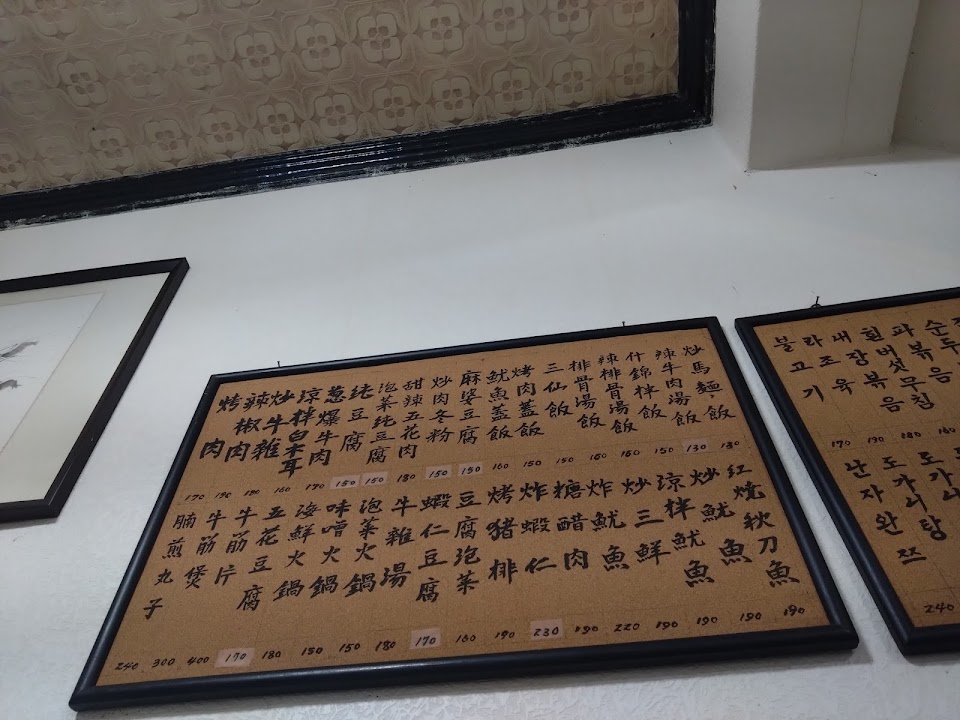 炒馬麵飯
130
辣牛肉湯飯
130
什錦拌飯
150
辣排骨湯飯
160
排骨湯飯
160
三仙飯
150
烤肉蓋飯
150
魷魚蓋飯
160
麻婆豆腐
150
炒肉冬粉
150
甜辣五花肉
180
泡菜純豆腐
150
純豆腐
150
蔥爆牛肉
170
涼拌白木耳
160
炒牛雜
180
辣椒肉
190
烤肉
170
紅燒秋刀魚
190
炒魷魚
190
涼拌魷魚
190
炒三鮮
190
炸魷魚
220
糖醋肉
190
炸蝦仁
230
烤豬排
190
豆腐泡菜
160
蝦仁豆腐
170
牛雜湯
180
泡菜火鍋
150
味噌火鍋
150
海鮮火鍋
180
五花豆腐
170
牛筋片
400
牛筋煲
300
腩煎丸子
240
불고기
170
라조육
190
내장볶음
180
흰버섯무침
160
난자완쯔
240